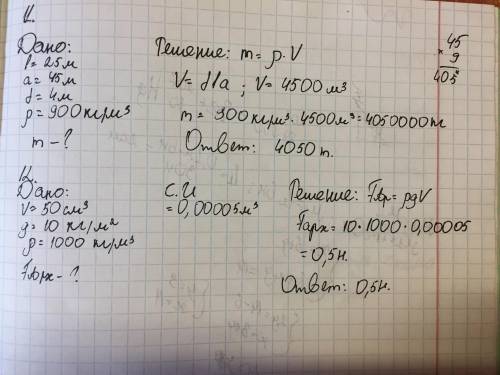 11.
Дано:
l = 25м
a = 45м
d = 4м
ρ = 900кг/м³
m - ?
Решение: m = ρ·V
V = dla ; V = 4500 м³
m = 900 кг/м³ · 4500м³ = 4050000кг
Ответ: 4050 т.
45
× 9
405
12.
Дано:
V = 50 см³
g = 10 кг/м²
ρ = 1000 кг/м³
Fарх - ?
С.И
= 0,00005м³
Решение: Fарх = ρgV
Fарх = 10·1000·0,00005
= 0,5н.
Ответ: 0,5н.